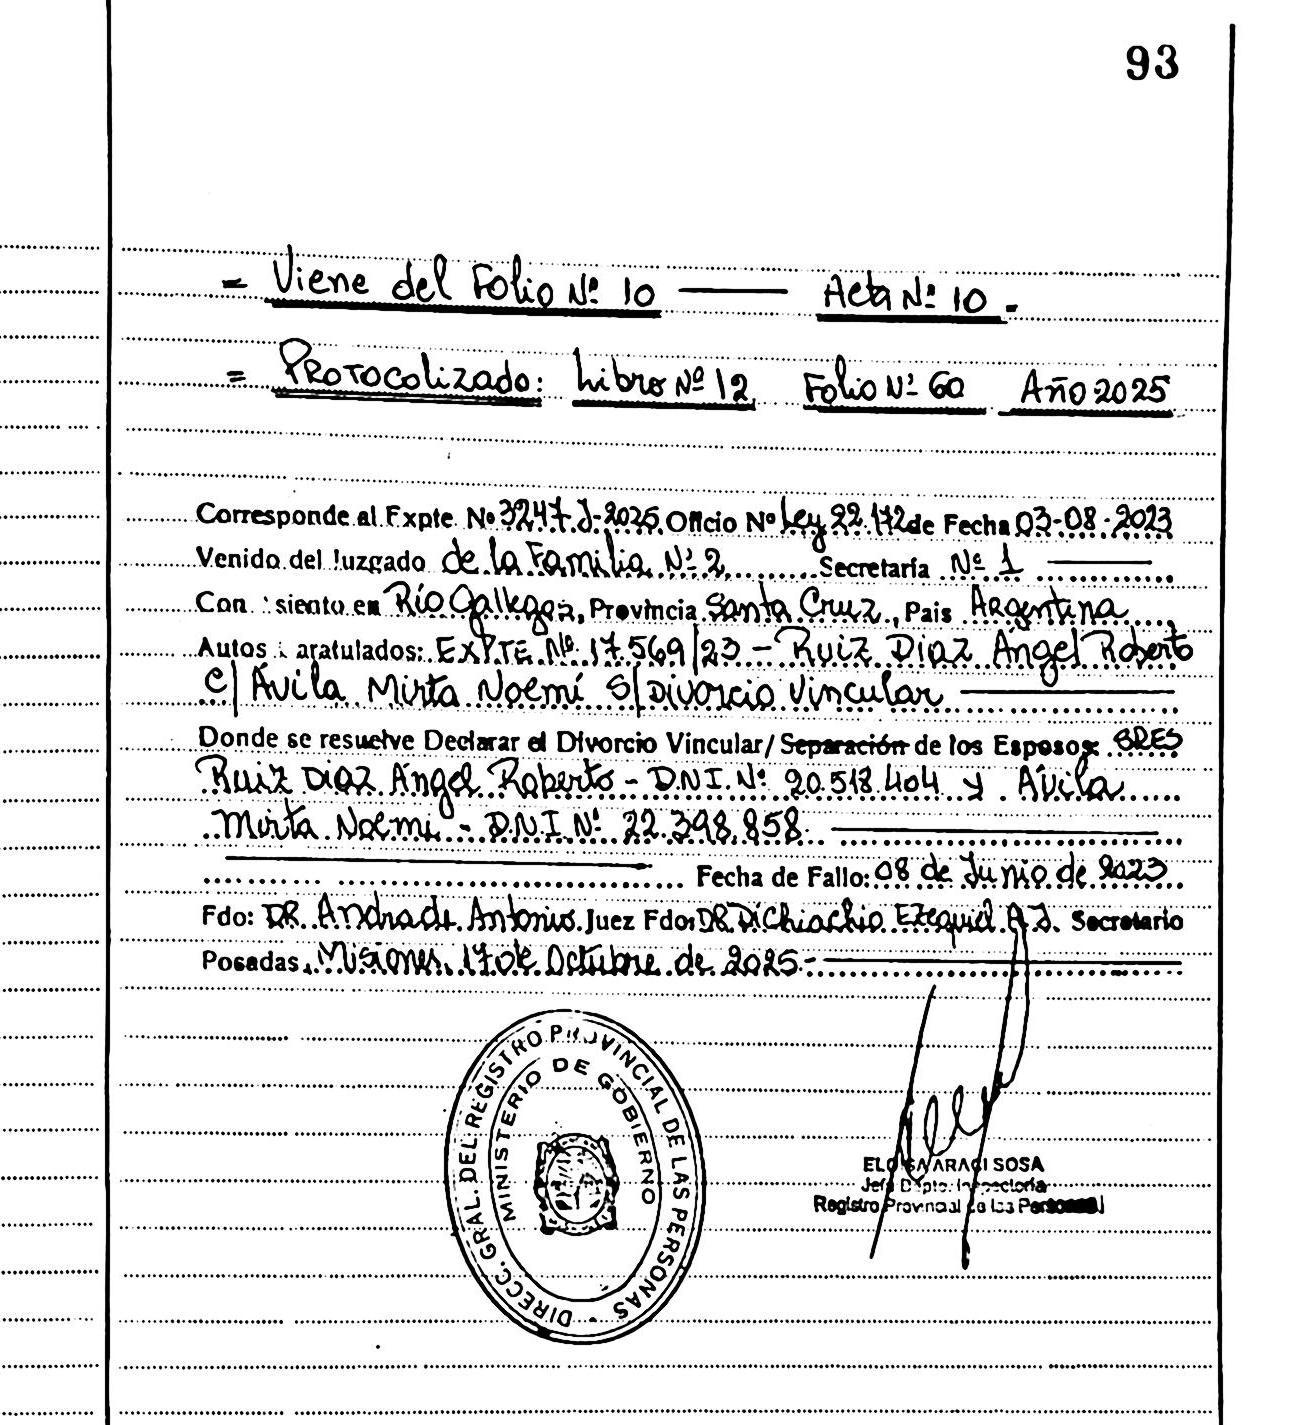 93
= Viene del Folio Nº 10 — Acta Nº 10 -
= PROTOCOLIZADO: Libro Nº 12 Folio Nº 60 Año 2025
Corresponde al Expte Nº 3247-J-2025 Oficio Nº Ley 22.172 de Fecha 03-08-2023
Venido del Juzgado de la Familia Nº 2 Secretaría Nº 1
Con siento en Río Gallegos, Provincia Santa Cruz, País Argentina
Autos aratulados: EXPTE Nº 17.569/23 - Ruiz Diaz Ángel Roberto
C/ Ávila Mirta Noemí S/ Divorcio Vincular
Donde se resuelve Declarar el Divorcio Vincular/Separación de los Esposos: SRES
Ruiz Diaz Ángel Roberto - D.N.I. Nº 20.518.404 y Ávila
Mirta Noemi - D.N.I Nº 22.398.858
Fecha de Fallo: 08 de Junio de 2023
Fdo: DR. Andrade Antonio Juez Fdo: DR Dichiachio Ezequiel A.J. Secretario
Posadas, Misiones, 17 de Octubre de 2025.-
DIRECC. GRAL. DEL REGISTRO PROVINCIAL DE LAS PERSONAS
MINISTERIO DE GOBIERNO
ELOISA ARACI SOSA
Jefa Dpto. Inspectoría
Registro Provincial de las Personas